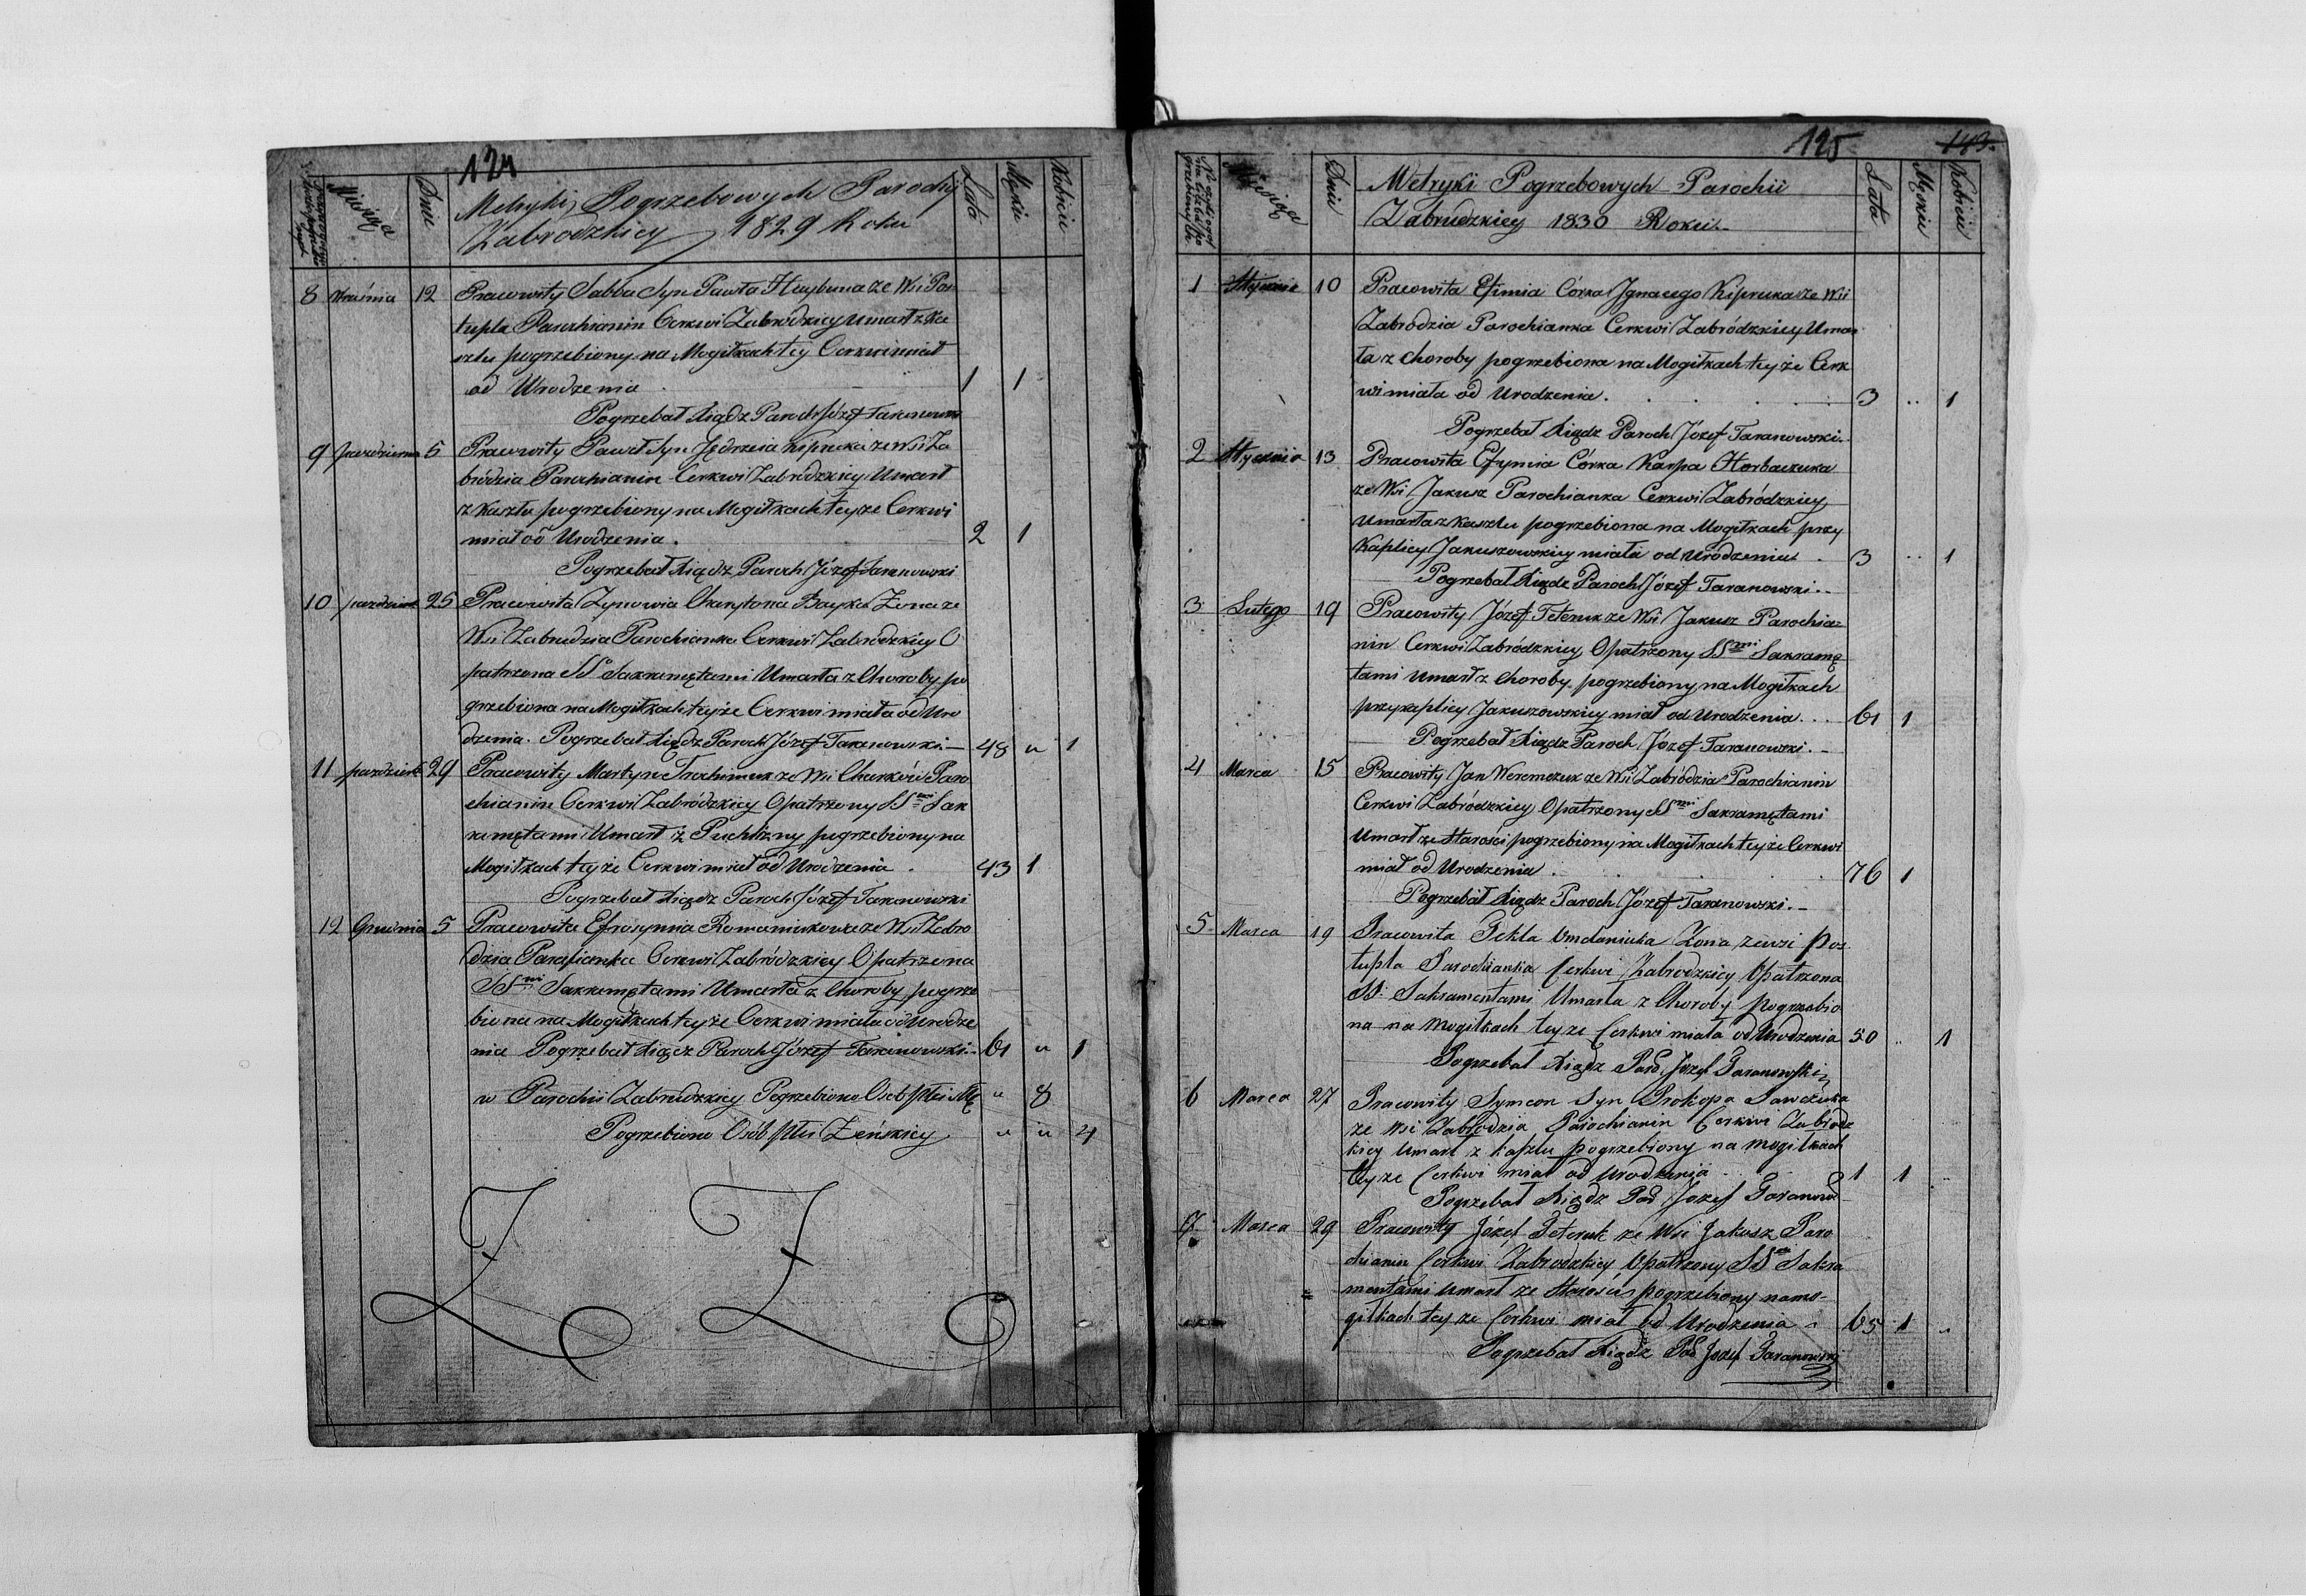 124
Miesiąca
Dnia
Metryki Pogrzebowych Parochij
Zabrodzkiey 1829 Roku
Lata
Męskie
Kobicie
8 Wraśnia 12 Pracowity Sabba Syn Pawła ze Wsi Pos
tupla Parochianin Cerkwi Zabrodzkiey Umarł z Ka
szlu pogrzebiony na Mogiłkach tey Cerkwi miał
od Urodzenia 1 1
Pogrzebał Xiądz Paroch Józef Taranowski
9 5 Pracowity Paweł Syn Jędrzeia Kipruka ze Wsi Za
bródzia Parochianin Cerkwi Zabródzkiey Umarł
z Kaszlu pogrzebiony na Mogiłkach teyże Cerkwi
miał od Urodzenia. 2 1
Pogrzebał Xiądz Paroch Józef Taranowski
10 25 Pracowita Zynowia Charytona Bayka Żona ze
Wsi Zabrudzia Parochianka Cerkwi Zabródzkiey O
patrzona SS Sakramętami Umarła z Choroby po
grzebiona na Mogiłkach teyże Cerkwi miała od Uro
dzenia. Pogrzebał Xiądz Paroch Józef Taranowski.— 48 „ 1
11 29 Pracowity Martyn Trochimuk ze Wsi Paro
chianin Cerkwi Zabródzkiey Opatrzony SSmi Sak
ramętami Umarł z Puchlizny pogrzebiony na
Mogiłkach teyże Cerkwi miał od Urodzenia. 43 1
Pogrzebał Xiądz Paroch Józef Taranowski
12 Grudnia 5 Pracowita Efrosynnia Romaniukowa ze Wsi Zabro
dzia Parafianka Cerkwi Zabródzkiey Opatrzona
SSmi Sakramętami Umarła z Choroby pogrze
biona na Mogiłkach teyże Cerkwi miała od Urodze
nia Pogrzebał Xiądz Paroch Józef Taranowski.— 61 „ 1
w Parochii Zabrudzkiey Pogrzebiono Osób płci Mę „ 8
Pogrzebiono Osób płci Żeńskiey „ „ 4
125
143.
Miesiąca
Dnia
Metryki Pogrzebowych Parochii
Zabrudzkiey 1830 Roku.
Lata
Męskie
Kobicie
1 Stycznia 10 Pracowita Efimia Córka Jgnacego Kipruka ze Wsi
Zabrodzia Parochianka Cerkwi Zabródzkiey Umar
ła z Choroby pogrzebiona na Mogiłkach teyże Cerk
wi miała od Urodzenia. 3 .. 1
Pogrzebał Xiądz Paroch Józef Taranowski.
2 Stycznia 13 Pracowita Efymia Córka Karpa Horbaczuka
ze Wsi Jakusz Parochianka Cerkwi Zabródzkiey
Umarła z Kaszlu pogrzebiona na Mogiłkach przy
Kaplicy Jakuszowskiey miała od Urodzenia. 3 .. 1
Pogrzebał Xiądz Paroch Józef Taranowski.
3 Lutego 19 Pracowity Józef Teteruk ze Wsi Jakusz Parochia=
nin Cerkwi Zabródzkiey Opatrzony SSmi Sakramę
tami Umarł z Choroby pogrzebiony na Mogiłkach
przy kaplicy Jakuszowskiey miał od Urodzenia. 61 1
Pogrzebał Xiądz Paroch Józef Taranowski.—
4 Marca 15 Pracowity Jan Weremczuk ze Wsi Zabródzia Parochianin
Cerkwi Zabródzkiey Opatrzony SSmi Sakramętami
Umarł ze Starości pogrzebiony na Mogiłkach teyże Cerkwi
miał od Urodzenia. 76 1
Pogrzebał Xiądz Paroch Józef Taranowski.—
5 Marca 19 Pracowita Tekla Żona ze wsi Pos
tupla Parochianka Cerkwi Zabrodzkiey Opatrzona
SS: Sakramentami Umarła z Choroby pogrzebio
na na Mogiłkach teyże Cerkwi miała od Urodzenia 50 .. 1
Pogrzebał Xiądz Par. Józef Taranowski
6 Marca 27 Pracowity Symeon Syn Prokopa Sawczuka
ze Wsi Zabrodzia Parochianin Cerkwi Zabrodz
kiey Umarł z kaszlu pogrzebiony na mogiłkach
teyże Cerkwi miał od Urodzenia 1 1
Pogrzebał Xiądz Par Józef Taranow
7 Marca 29 Pracowity Józef Teteruk ze Wsi Jakusz Paro
chianin Cerkwi Zabrodzkiey Opatrzony SS Sakra
mentami Umarł ze Starości pogrzebiony na mo-
giłkach teyże Cerkwi miał od Urodzenia 65 1
Pogrzebał Xiądz Par Józef Taranowski